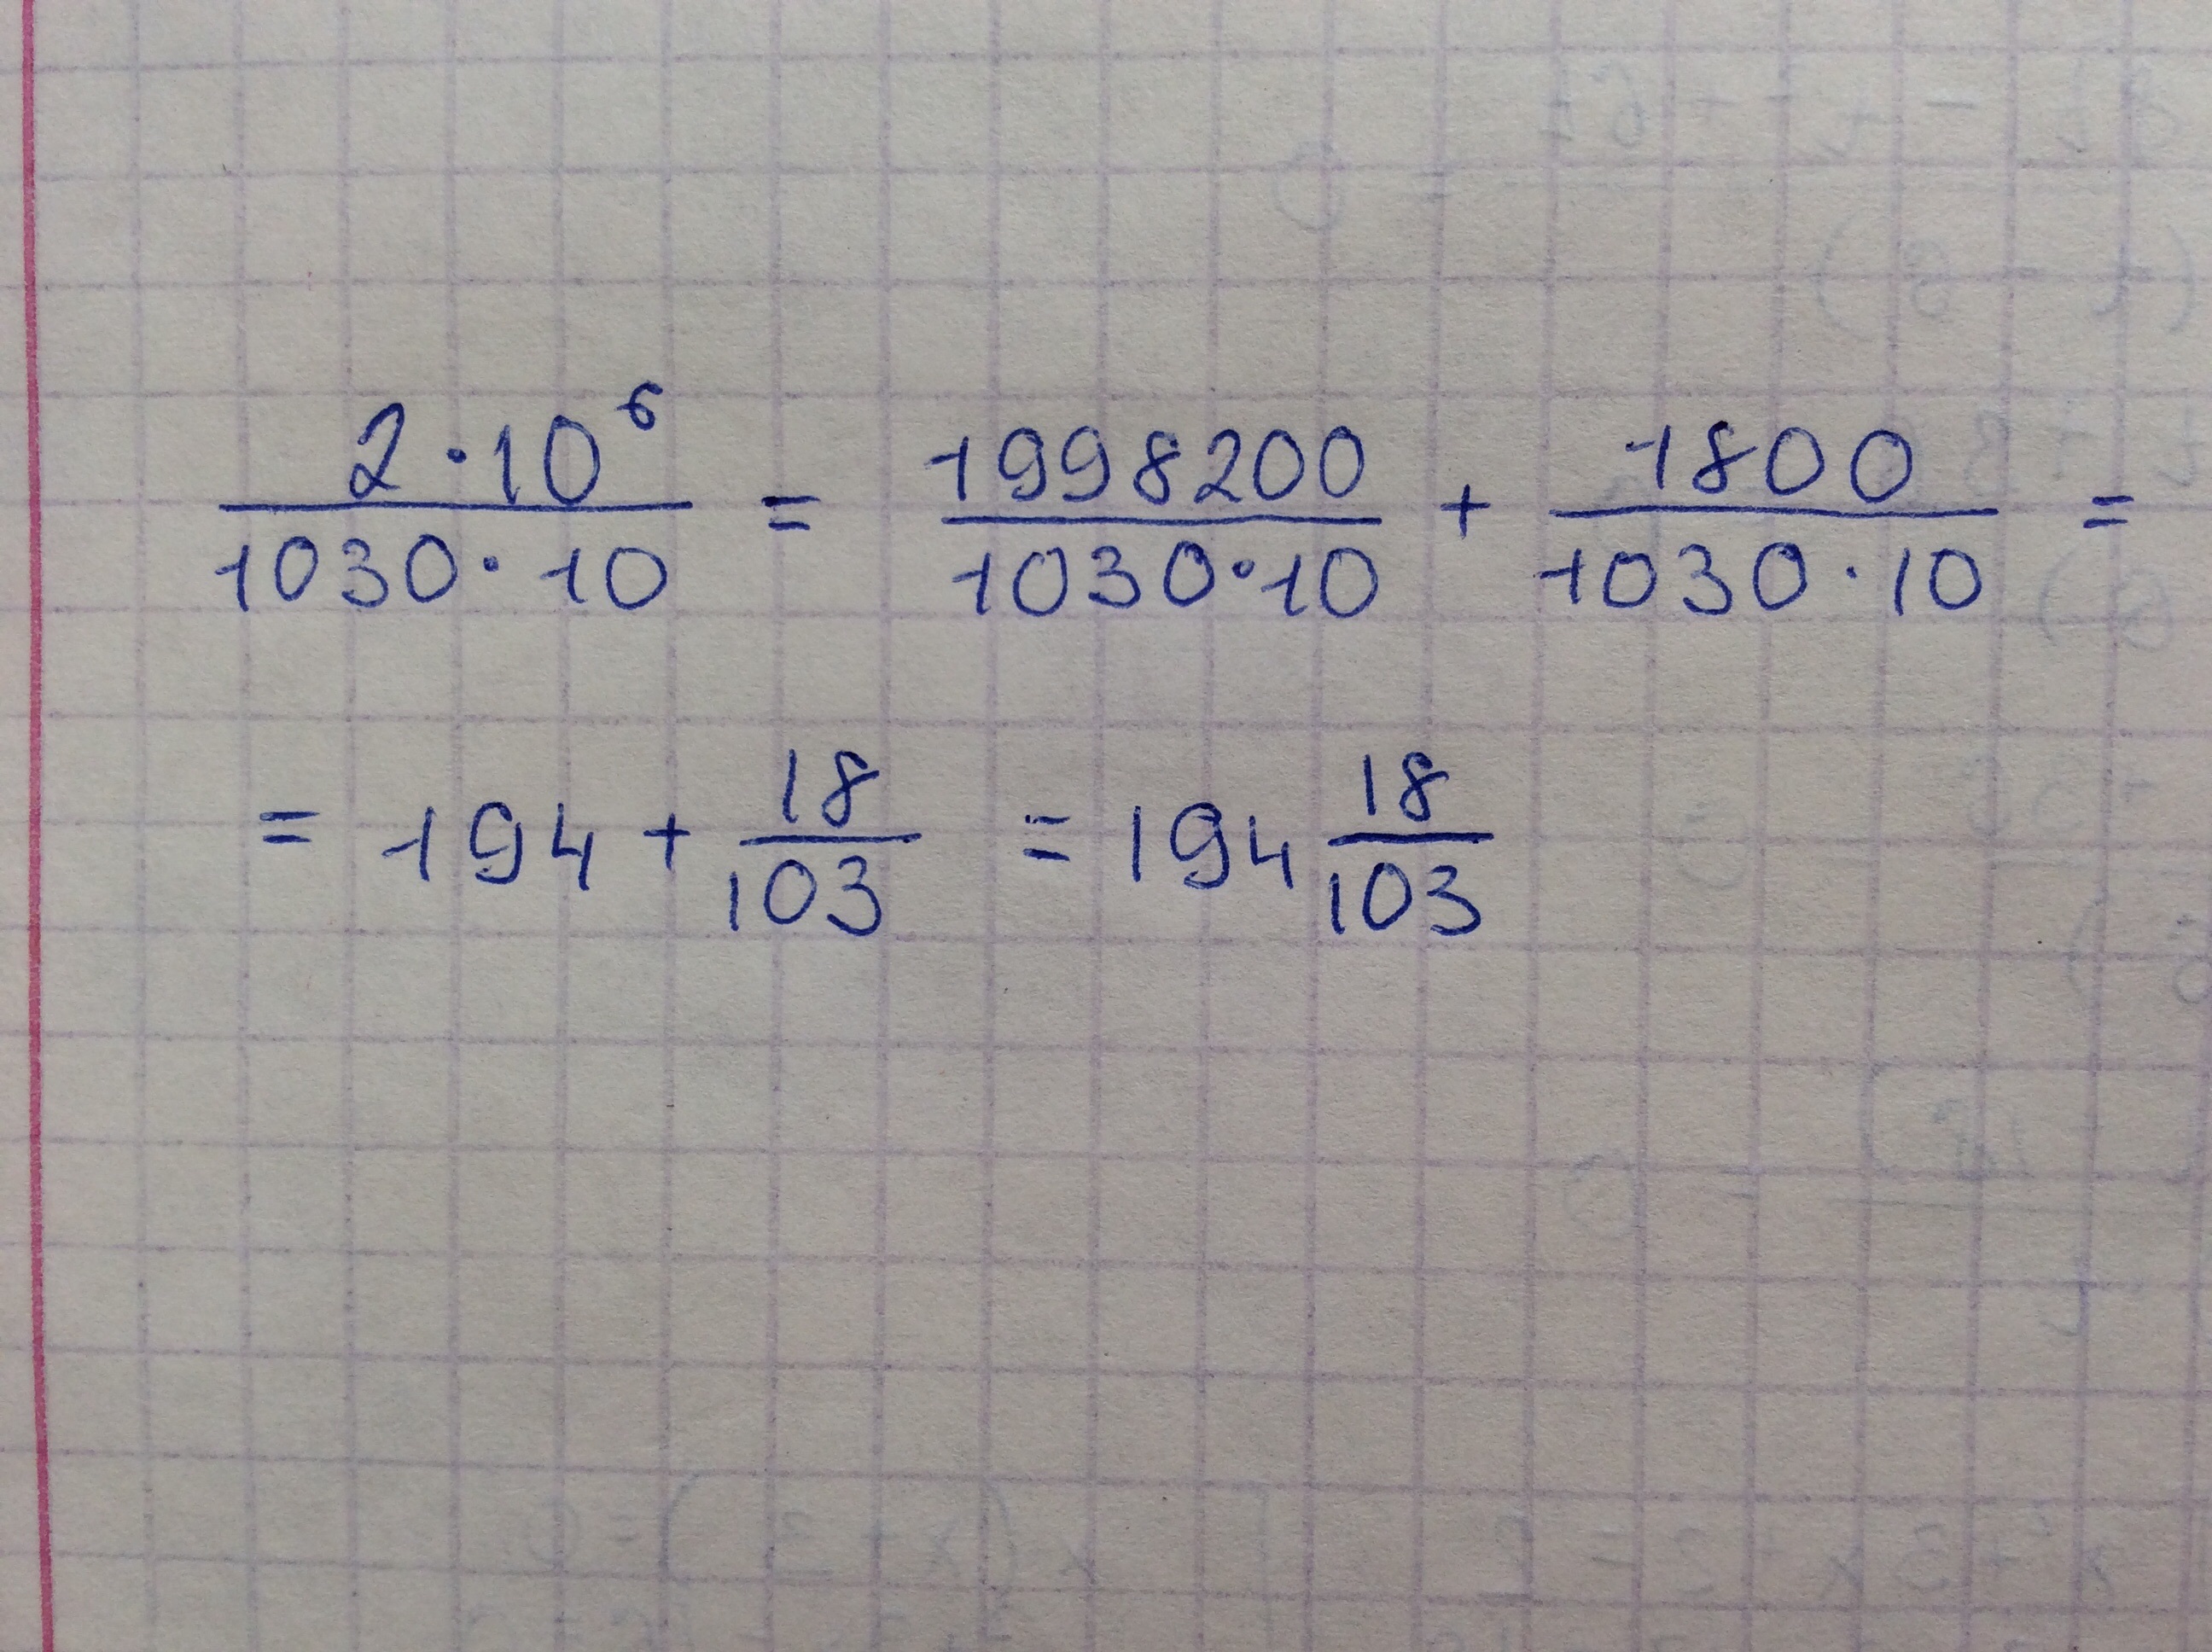 2·10⁶/1030·10 = 1998200/1030·10 + 1800/1030·10 =
= 194 + 18/103 = 194 18/103